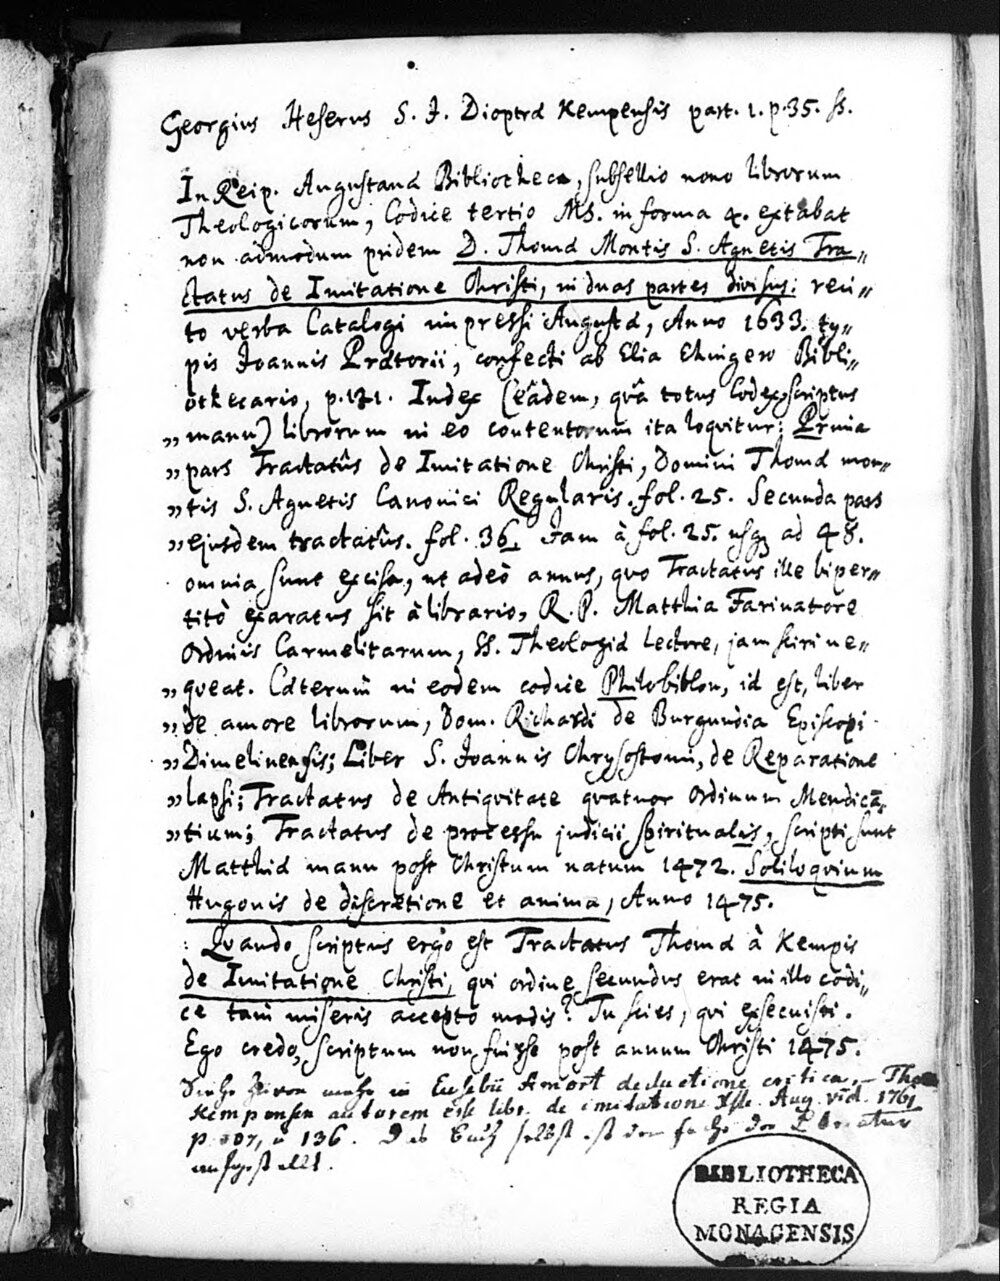 Georgius Heserus S. J. Dioptra Kempensis part. 1. p. 35. ss.
In Reip. Augustana Bibliotheca, subsellio nono librorum
Theologicorum, Codice tertio MS. in forma 4. extabat
non admodum pridem D. Thomæ Montis S. Agnetis Tra„
ctatus de Imitatione Christi, in duas partes divisus: reci„
to verba Catalogi impressi Augustæ, Anno 1633. ty„
pis Joannis Prætorii, confecti ab Elia Ehingero Bibli„
othecario, p. 121. Index (eâdem, quâ totus Codex scriptus
„ manu) librorum in eo contentorum ita loqvitur: Prima
„ pars Tractatûs de Imitatione Christi, Domini Thomæ mon„
„ tis S. Agnetis Canonici Regularis. fol. 25. Secunda pars
„ ejusdem tractatûs. fol. 36. Jam à fol. 25. usq; ad 48.
omnia sunt excisa, ut adeò annus, quo Tractatus ille biper„
titò exaratus sit à librario, R. P. Matthia Farinatore
Ordinis Carmelitarum, SS. Theologiæ Lectore, jam sciri ne„
„ qveat. Cæterum in eodem codice Philobiblon, id est, liber
„ de amore librorum, Dom. Richardi de Burgundia Episcopi
„ Dimelinensis; Liber S. Joannis Chrysostomi, de Reparatione
„ lapsi; Tractatus de Antiqvitate qvatuor Ordinum Mendicã„
„ tium; Tractatus de processu judicii spiritualis, scripti sunt
Matthiæ manu post Christum natum 1472. Soliloqvium
Hugonis de discretione et anima, Anno 1475.
Qvando scriptus ergo est Tractatus Thomæ à Kempis
de Imitatione Christi, qvi ordine secundus erat in illo codi„
ce tam miseris accepto modis? Tu scies, qvi exsecuisti.
Ego credo, scriptum non fuisse post annum Christi 1475.
Siehe hievon mehr in Eusebii Amort deductione critica
Kempensem autorem esse libr. de imitatione Xsti. Aug. vid. 1761
p. 107, u 136. Das Buch selbst ist von
BIBLIOTHECA
REGIA
MONACENSIS